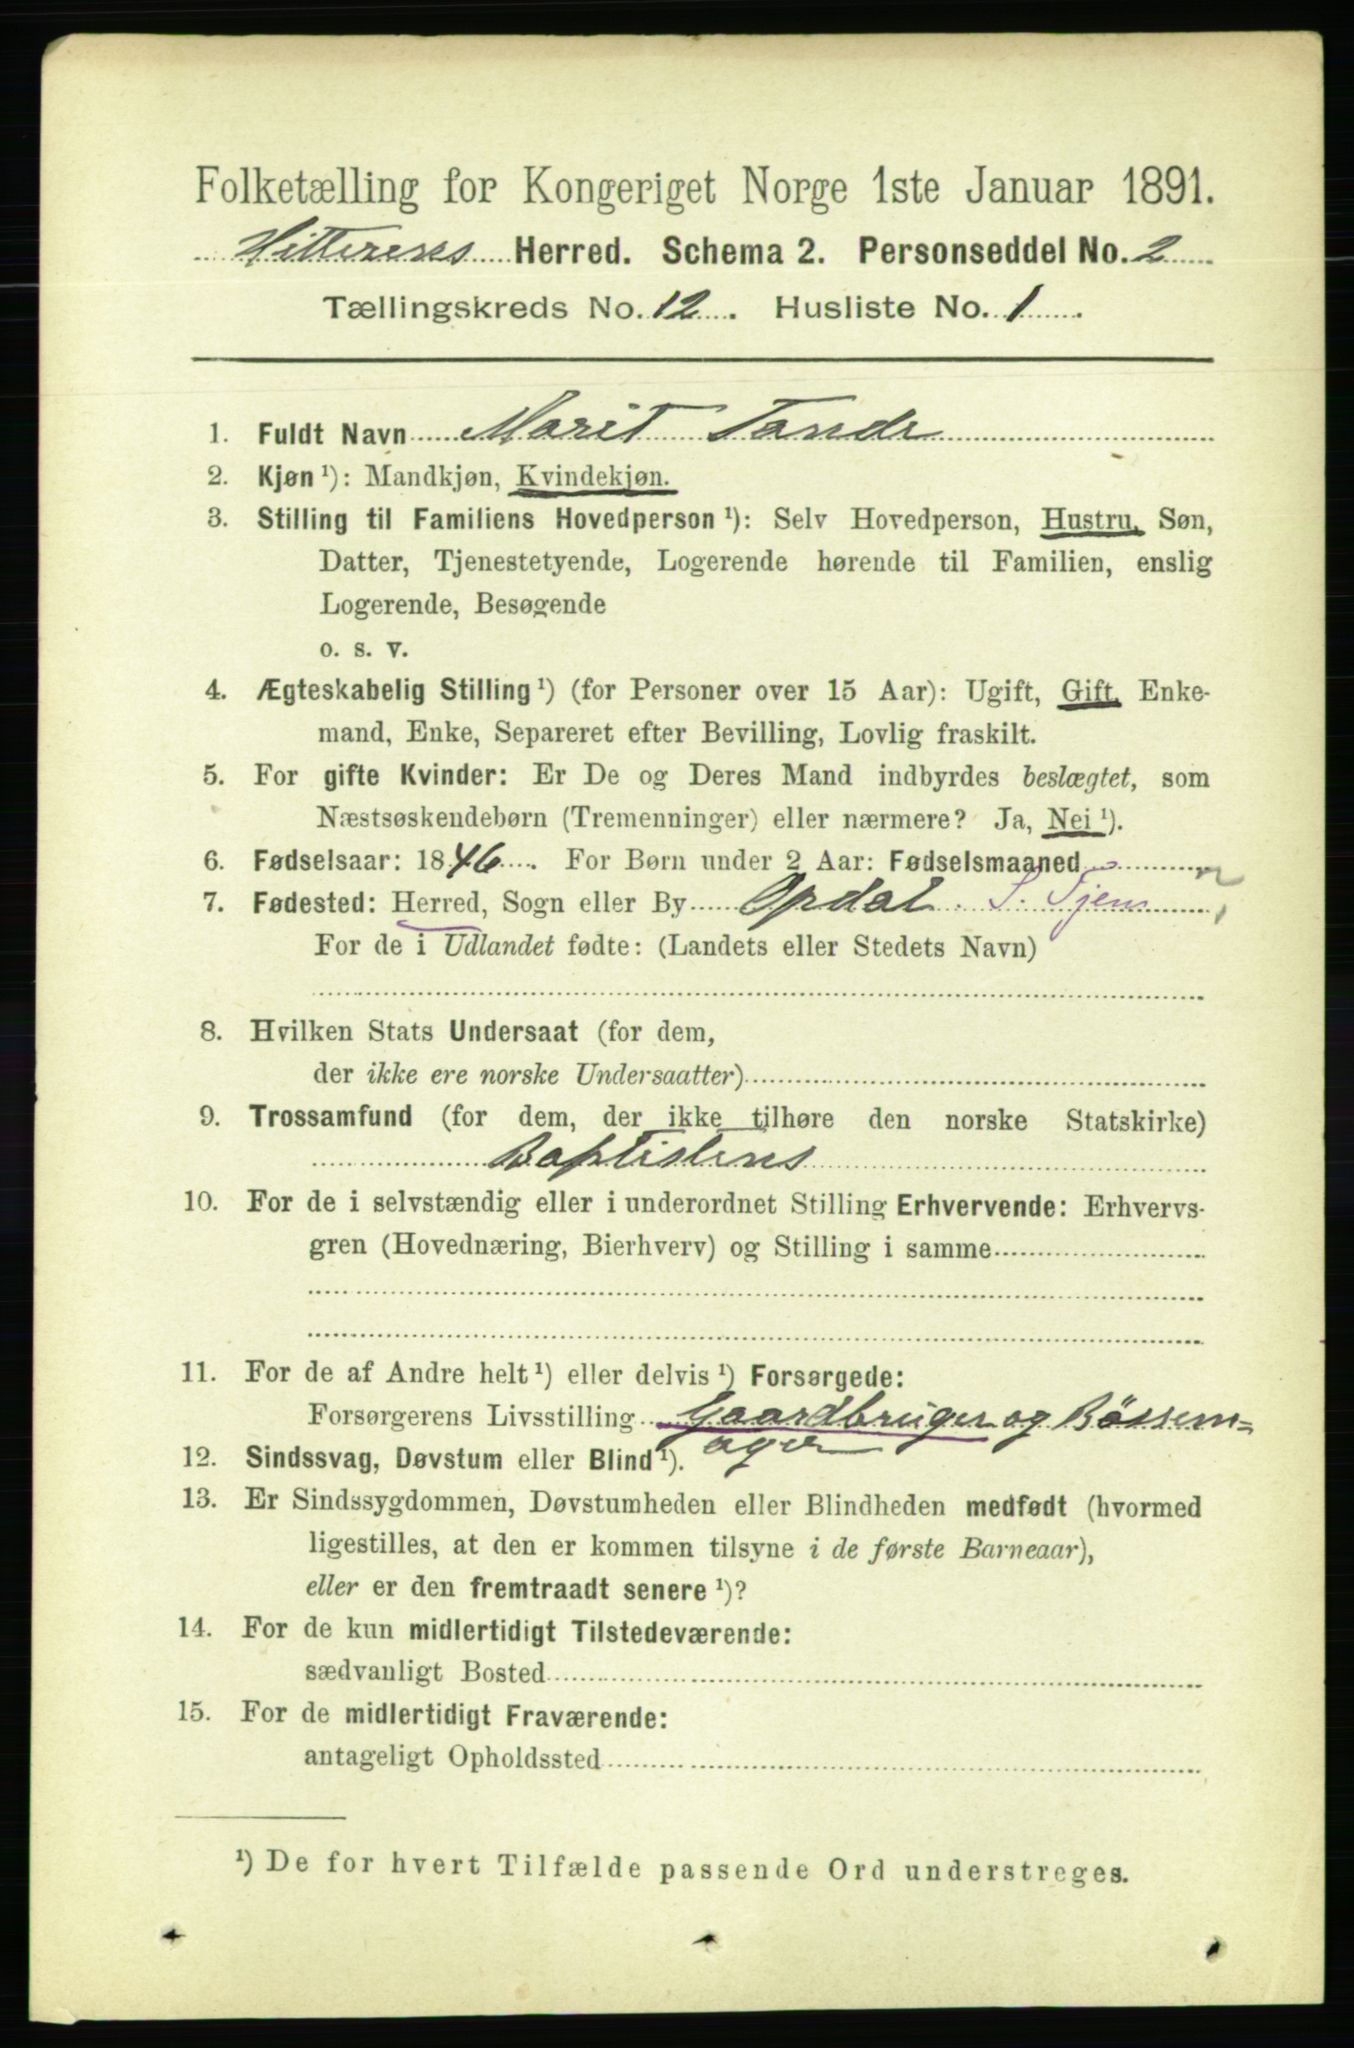 Folketælling for Kongeriget Norge 1ste Januar 1891.
Hitterens Herred. Schema 2. Personseddel No. 2
Tællingskreds No. 12. Husliste No. 1.
1. Fuldt Navn Marit Tande
2. Kjøn ¹): Mandkjøn, Kvindekjøn.
3. Stilling til Familiens Hovedperson ¹): Selv Hovedperson, Hustru, Søn,
Datter, Tjenestetyende, Logerende hørende til Familien, enslig
Logerende, Besøgende
o. s. v.
4. Ægteskabelig Stilling ¹) (for Personer over 15 Aar): Ugift, Gift, Enke-
mand, Enke, Separeret efter Bevilling, Lovlig fraskilt.
5. For gifte Kvinder: Er De og Deres Mand indbyrdes beslægtet, som
Næstsøskendebørn (Tremenninger) eller nærmere? Ja, Nei ¹).
6. Fødselsaar: 1846. For Børn under 2 Aar: Fødselsmaaned
7. Fødested: Herred, Sogn eller By Opdal. S. Tjem
For de i Udlandet fødte: (Landets eller Stedets Navn)
8. Hvilken Stats Undersaat (for dem,
der ikke ere norske Undersaatter)
9. Trossamfund (for dem, der ikke tilhøre den norske Statskirke)
Baptistens
10. For de i selvstændig eller i underordnet Stilling Erhvervende: Erhvervs-
gren (Hovednæring, Bierhverv) og Stilling i samme
11. For de af Andre helt ¹) eller delvis ¹) Forsørgede:
Forsørgerens Livsstilling Gaardbruger og Bössem=
ager
12. Sindssvag, Døvstum eller Blind ¹).
13. Er Sindssygdommen, Døvstumheden eller Blindheden medfødt (hvormed
ligestilles, at den er kommen tilsyne i de første Barneaar),
eller er den fremtraadt senere ¹)?
14. For de kun midlertidigt Tilstedeværende:
sædvanligt Bosted
15. For de midlertidigt Fraværende:
antageligt Opholdssted
¹) De for hvert Tilfælde passende Ord understreges.